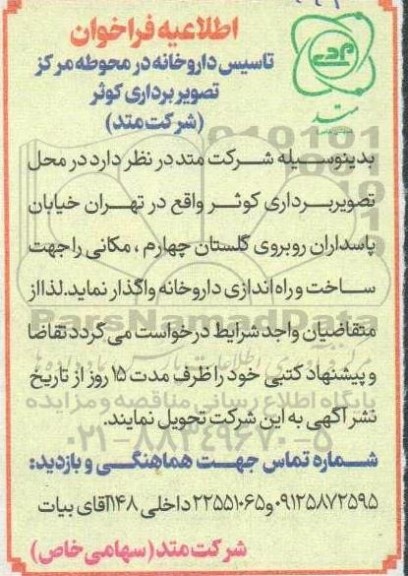 اطلاعیه فراخوان
تاسیس داروخانه در محوطه مرکز
تصویر برداری کوثر
(شرکت متد)
متد
بدینوسیله شرکت متد در نظر دارد در محل
تصویربرداری کوثر واقع در تهران خیابان
پاسداران روبروی گلستان چهارم ، مکانی را جهت
ساخت و راه اندازی داروخانه واگذار نماید. لذا از
متقاضیان واجد شرایط درخواست می گردد تقاضا
و پیشنهاد کتبی خود را ظرف مدت ۱۵ روز از تاریخ
نشر آگهی به این شرکت تحویل نمایند.
شماره تماس جهت هماهنگی و بازدید:
۰۹۱۲۵۸۷۲۵۹۵ و ۲۲۵۵۱۰۶۵ داخلی ۱۴۸ آقای بیات
شرکت متد (سهامی خاص)
ParsNamadData
پایگاه اطلاع رسانی مناقصه و مزایده
۰۲۱-۸۸۳۴۹۶۷۰-۵